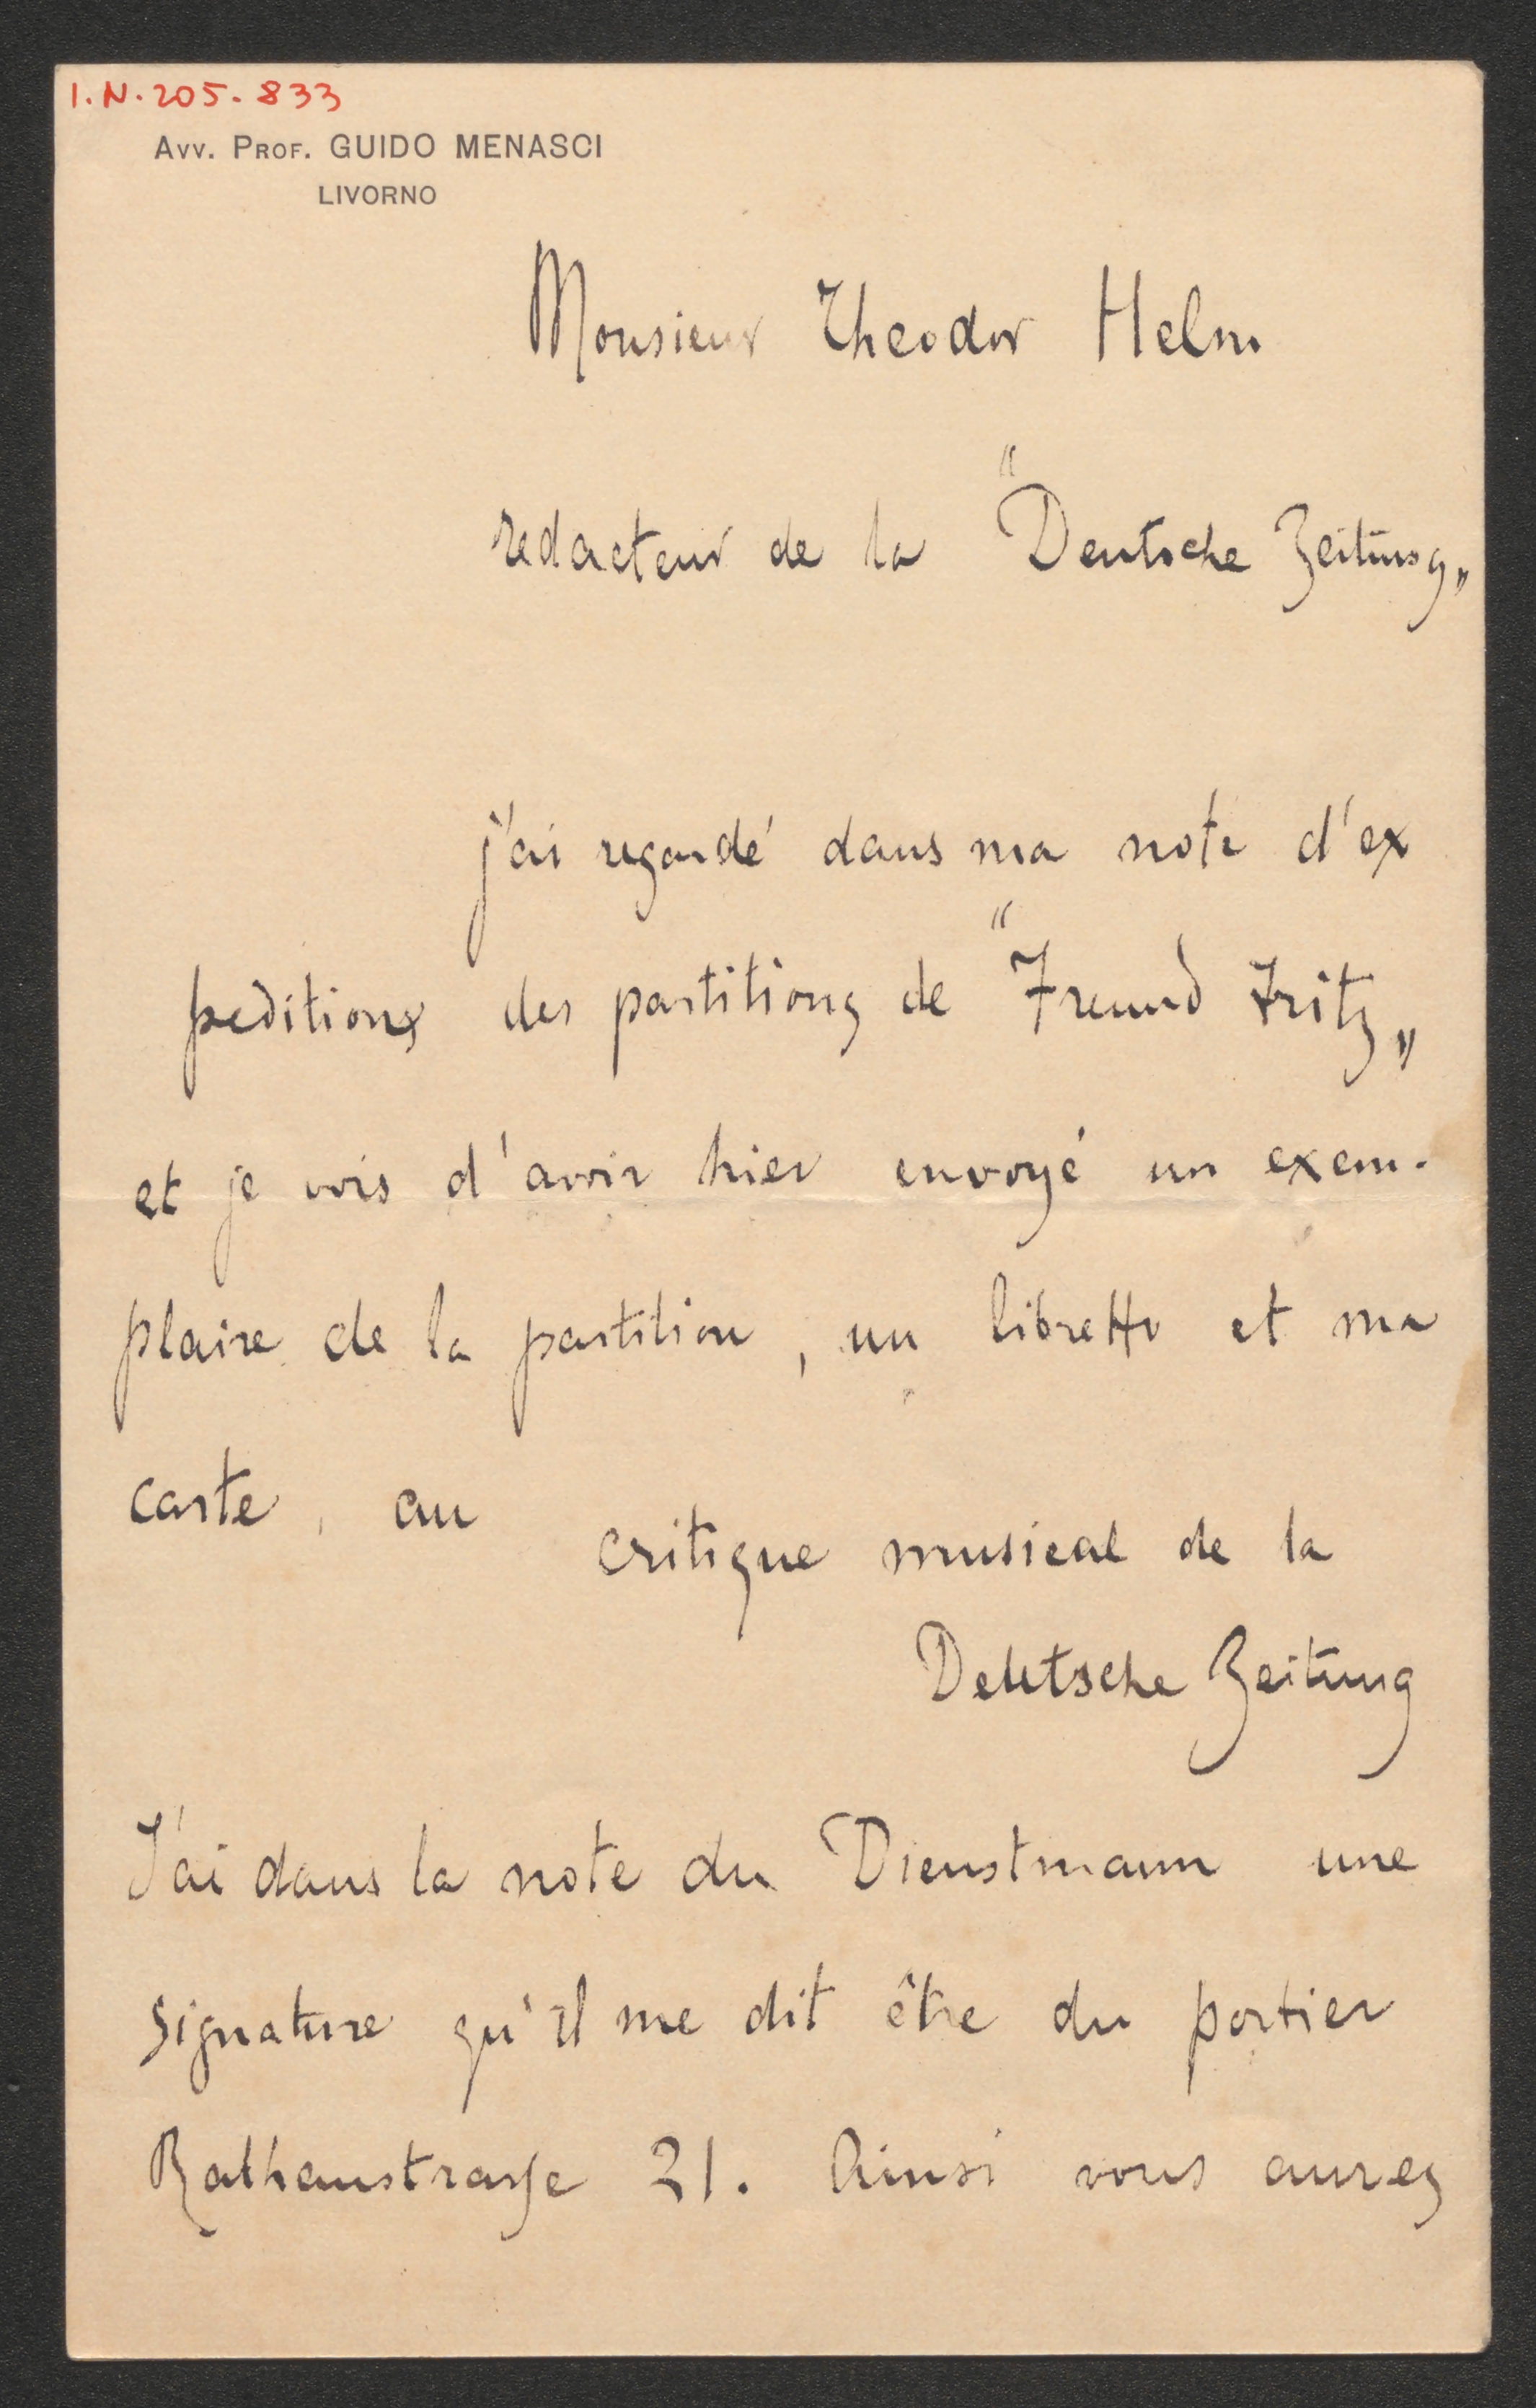 I.N. 205.833
Avv. Prof. GUIDO MENASCI
LIVORNO
Monsieur Theodor Helm
redacteur de la "Deutsche Zeitung"
j'ai regardé dans ma note d'ex
peditions des partitions de "Freund Fritz"
et je vois d'avoir hier envoyé un exem-
plaire de la partition, un libretto et ma
carte, au
critique musical de la
Deutsche Zeitung
J'ai dans la note du Dienstmann une
signature qu'il me dit être du portier
Rathaustrasse 21. Ainsi vous aurez